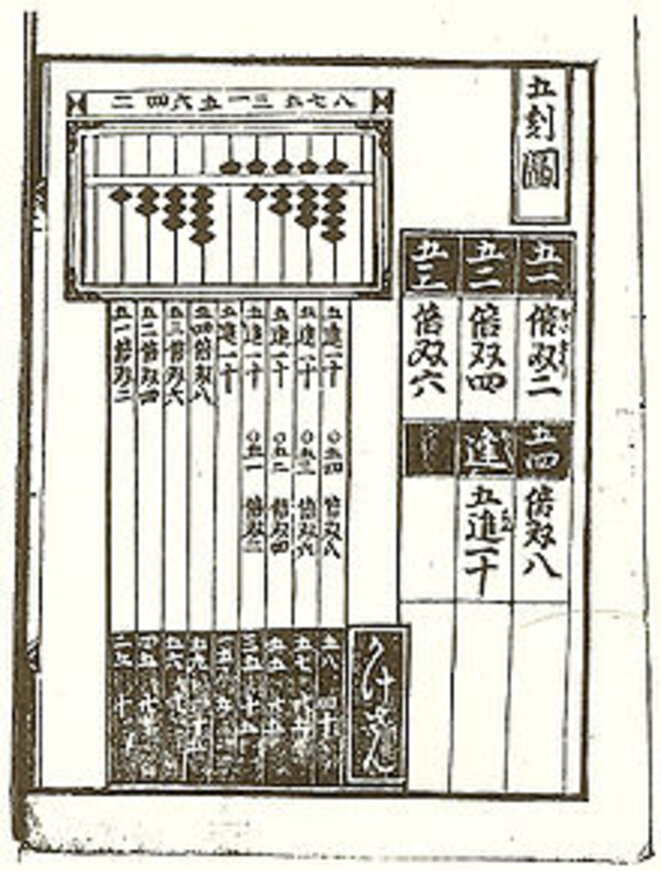 五刻圖
五一
倍双二
五二
倍双四
五三
倍双六
五四
倍双八
進
五進一十
二四六五一三五七八
五進一十 ○五四 倍双八
五進一十 ○五三 倍双六
五進一十 ○五二 倍双四
五進一十 ○五一 倍双二
五進一十
五四倍双八
五三倍双六
五二倍双四
五一倍双二
かけさん
五八 四十
五七
五五
三五